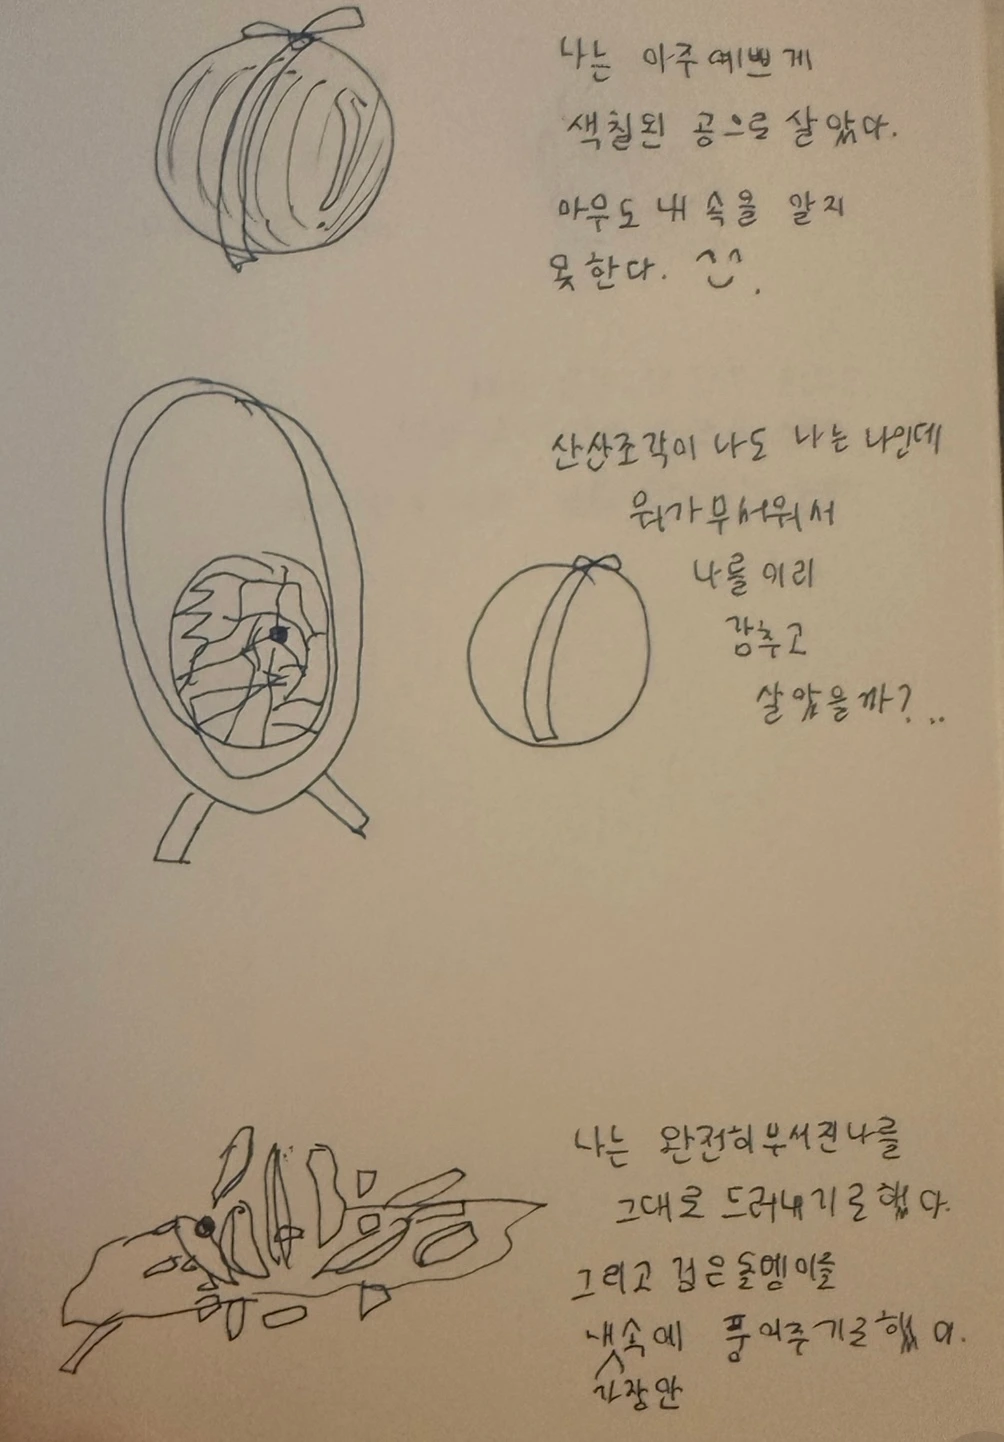 나는 아주 예쁘게
색칠된 공으로 살았다.
아무도 내 속을 알지
못한다.
산산조각이 나도 나는 나인데
뭐가 무서워서
나를 이리
감추고
살았을까?..
나는 완전히 부서진 나를
그대로 드러내기로 했다.
그리고 검은 돌멩이를
내 속에 품어주기로 했다.
가장 안